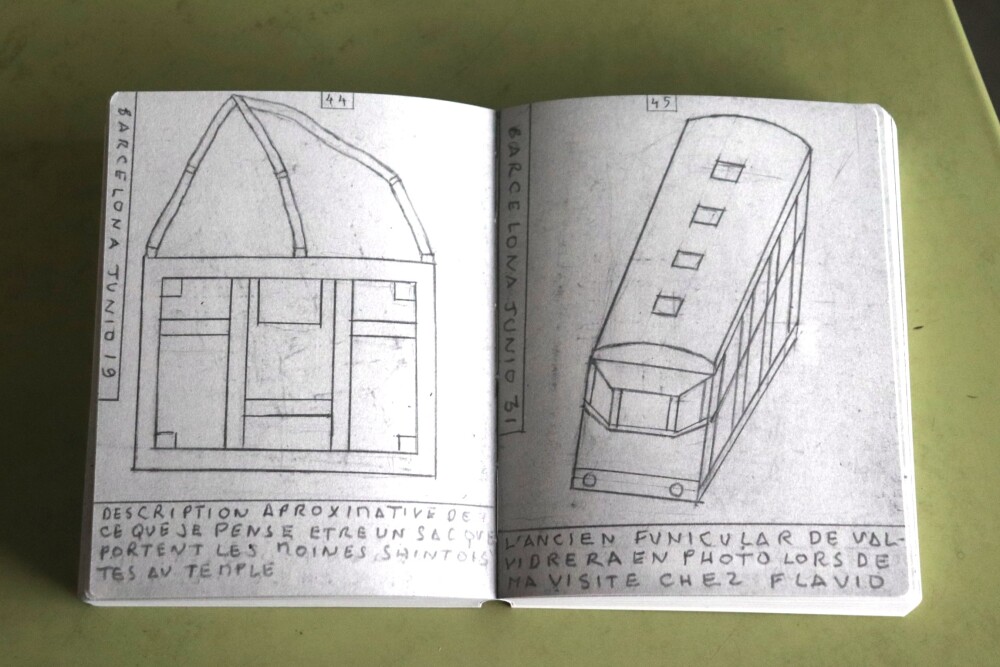 44
BARCELONA JUNIO 19
DESCRIPTION APROXIMATIVE DE
CE QUE JE PENSE ETRE UN SAC QUE
PORTENT LES MOINES SHINTOIS
TES AU TEMPLE
45
BARCELONA JUNIO 31
L'ANCIEN FUNICULAR DE VAL-
VIDRERA EN PHOTO LORS DE
MA VISITE CHEZ FLAVIO